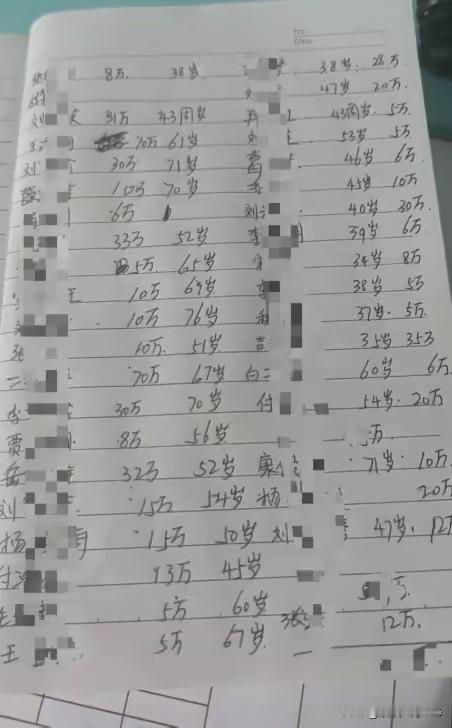 8万. 38岁 38岁. 28万
47岁 20万.
刘 31万 43周岁 43周岁. 5万
70万 61岁 53岁 5万
刘 30万 71岁 46岁 6万
70岁 45岁 10万
6万 刘 40岁 30万
33万 52岁 李 39岁 6万
5万. 65岁 34岁 8万
10万 69岁 李 38岁 5万
10万 76岁 程 37岁. 5万.
张 10万. 51岁 吉 35岁 35万
70万 67岁 白 60岁 6万
李 30万 70岁 付 54岁. 20万
贾 8万 56岁 万.
岳 32万 52岁 康 71岁. 10万
刘 15万 54岁 杨 20万
杨 15万 50岁 刘 47岁. 12万
付 13万 45岁
5万 60岁
王 5万 67岁 张 12万.